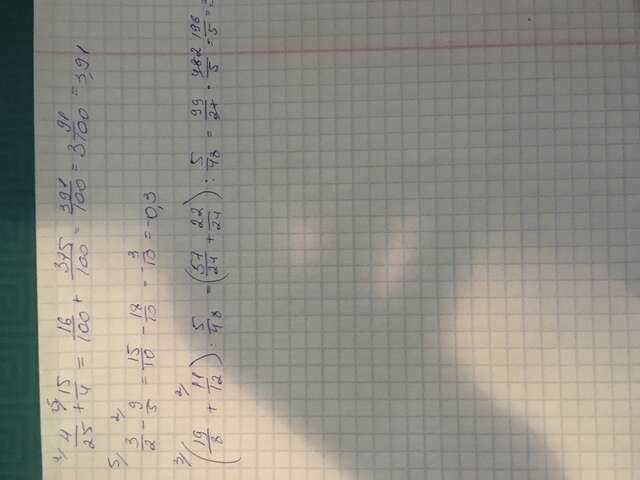 4/ 4/25 + 25/ 15/4 = 16/100 + 375/100 = 391/100 = 3 91/100 = 3,91
5/ 3/2 - 2/ 9/5 = 15/10 - 18/10 = -3/10 = -0,3
3/ (19/8 + 2/ 11/12) : 5/48 = (57/24 + 22/24) : 5/48 = 99/24 · 48 2/5 = 196/5 = 3